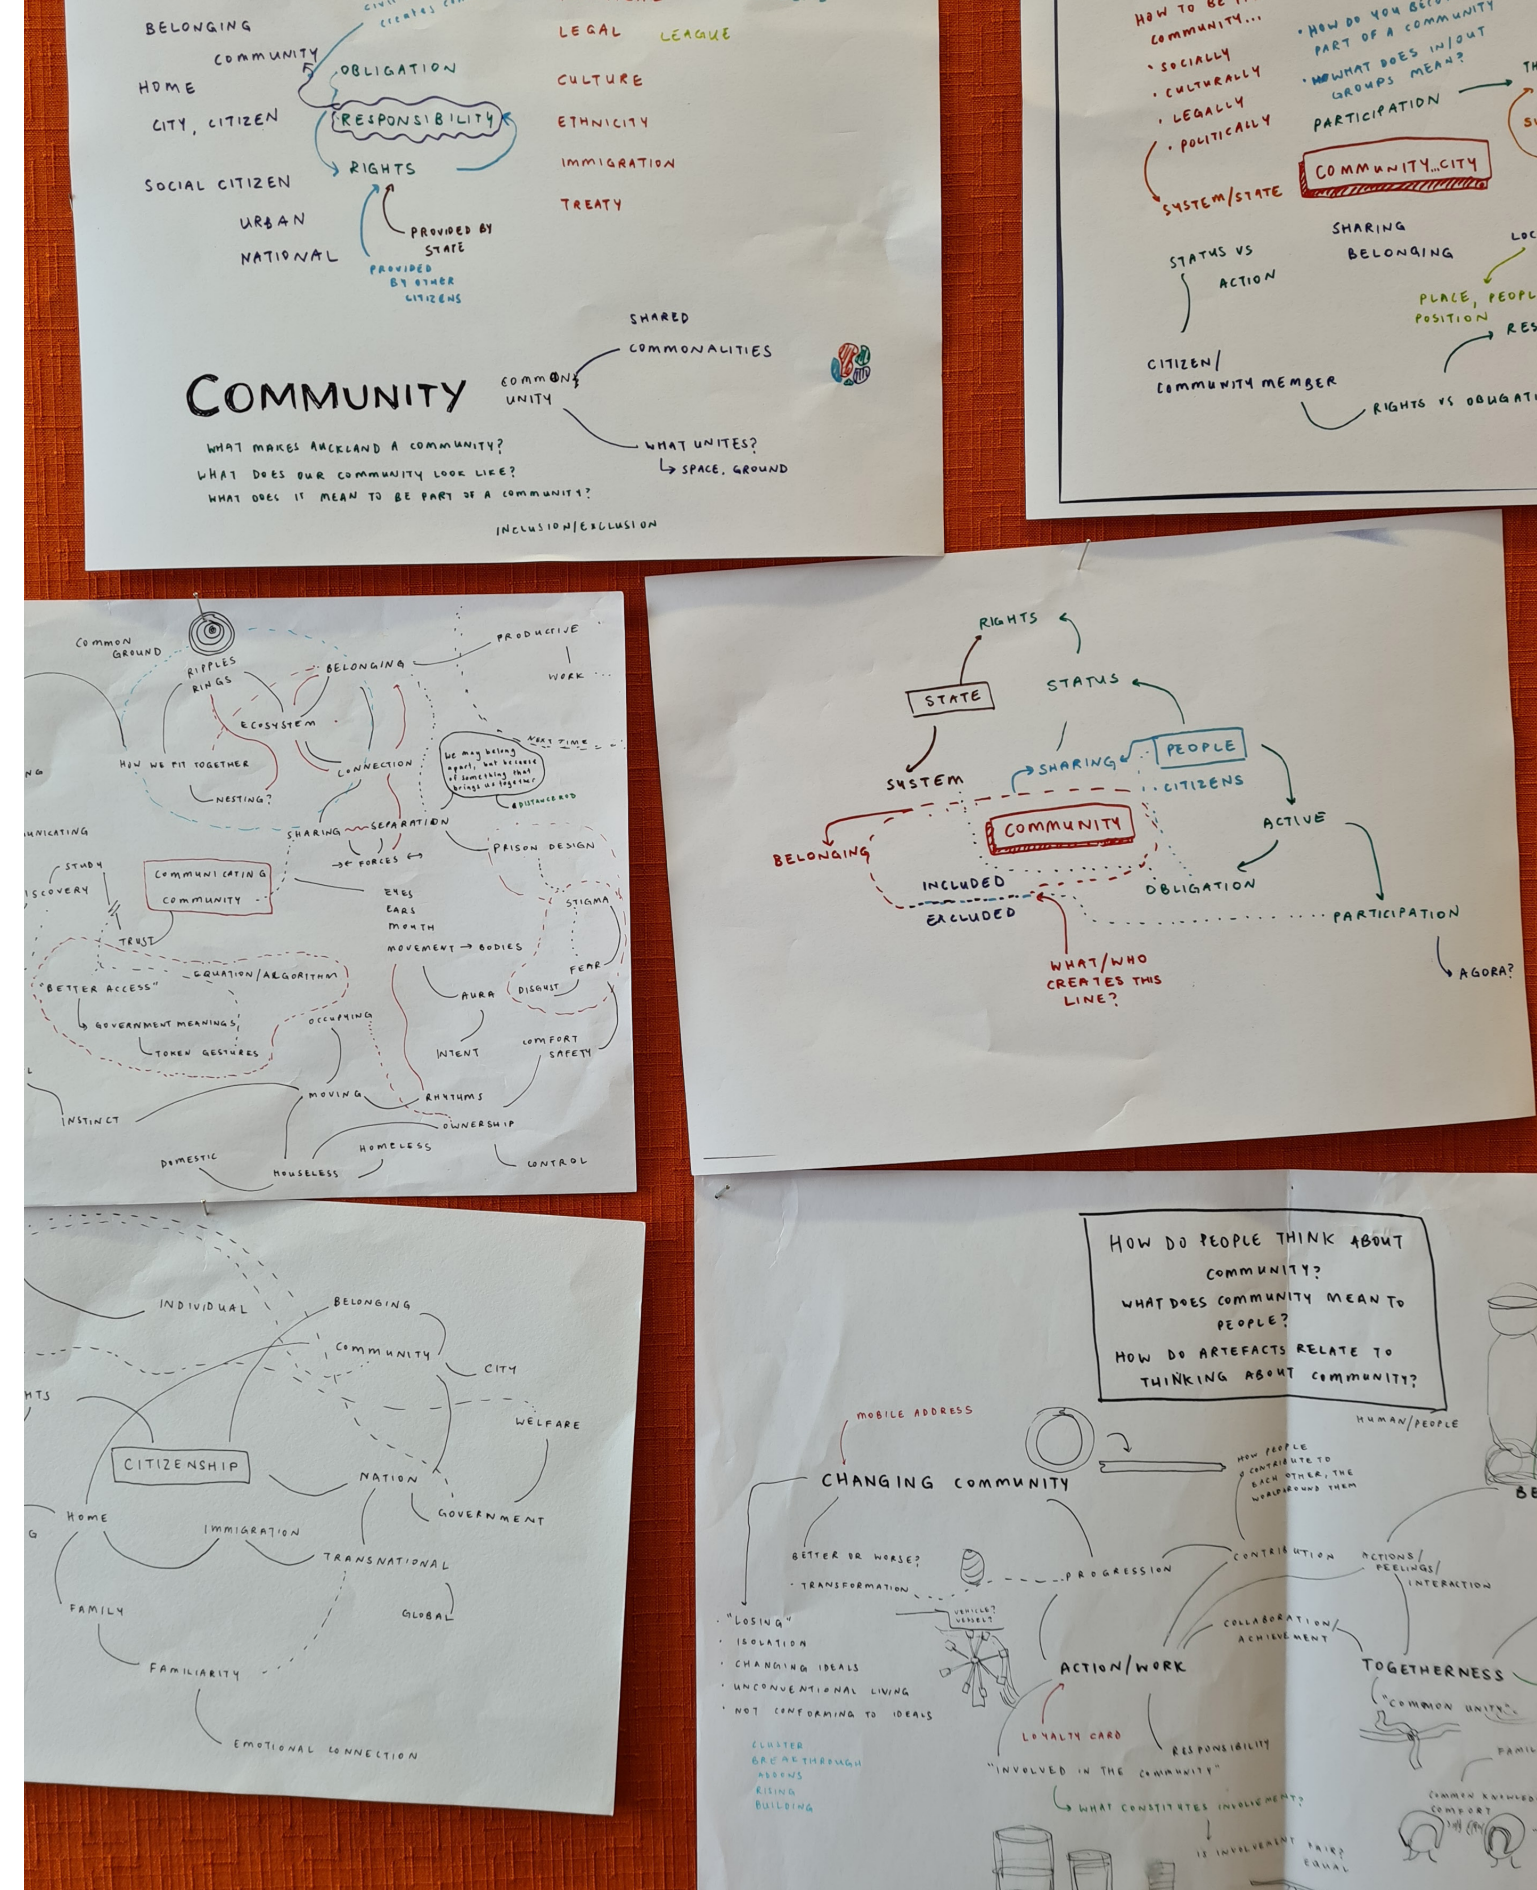 BELONGING
COMMUNITY
HOME
CITY, CITIZEN
SOCIAL CITIZEN
URBAN
NATIONAL
OBLIGATION
RESPONSIBILITY
RIGHTS
PROVIDED BY
STATE
PROVIDED
BY OTHER
CITIZENS
LEGAL LEAGUE
CULTURE
ETHNICITY
IMMIGRATION
TREATY
COMMUNITY
COMMON
UNITY
SHARED
COMMONALITIES
WHAT UNITES?
SPACE, GROUND
WHAT MAKES AUCKLAND A COMMUNITY?
WHAT DOES OUR COMMUNITY LOOK LIKE?
WHAT DOES IT MEAN TO BE PART OF A COMMUNITY?
INCLUSION/EXCLUSION
HOW TO BE
COMMUNITY...
• SOCIALLY
• CULTURALLY
• LEGALLY
• POLITICALLY
SYSTEM/STATE
• HOW DO YOU
PART OF A COMMUNITY
• WHAT DOES IN/OUT
GROUPS MEAN?
PARTICIPATION
COMMUNITY...CITY
SHARING
BELONGING
STATUS VS
ACTION
PLACE,
POSITION
CITIZEN/
COMMUNITY MEMBER
RIGHTS VS
COMMON
GROUND
RIPPLES
RINGS
BELONGING
PRODUCTIVE
WORK ...
ECOSYSTEM
HOW WE FIT TOGETHER
NESTING?
CONNECTION
We may belong
apart, but because
of something that
brings us together
NEXT TIME
SHARING
SEPARATION
FORCES
PRISON DESIGN
STUDY
COMMUNICATING
COMMUNITY
TRUST
EYES
EARS
MOUTH
MOVEMENT → BODIES
STIGMA
FEAR
DISGUST
EQUATION/ALGORITHM
"BETTER ACCESS"
GOVERNMENT MEANINGS
TOKEN GESTURES
OCCUPYING
AURA
INTENT
COMFORT
SAFETY
INSTINCT
MOVING
RHYTHMS
OWNERSHIP
HOMELESS
DOMESTIC
HOUSELESS
CONTROL
RIGHTS
STATE
STATUS
SYSTEM
SHARING
PEOPLE
CITIZENS
COMMUNITY
BELONGING
ACTIVE
INCLUDED
EXCLUDED
OBLIGATION
PARTICIPATION
AGORA?
WHAT/WHO
CREATES THIS
LINE?
INDIVIDUAL
BELONGING
COMMUNITY
CITY
WELFARE
CITIZENSHIP
NATION
GOVERNMENT
HOME
IMMIGRATION
TRANSNATIONAL
FAMILY
GLOBAL
FAMILIARITY
EMOTIONAL CONNECTION
HOW DO PEOPLE THINK ABOUT
COMMUNITY?
WHAT DOES COMMUNITY MEAN TO
PEOPLE?
HOW DO ARTEFACTS RELATE TO
THINKING ABOUT COMMUNITY?
HUMAN/PEOPLE
MOBILE ADDRESS
CHANGING COMMUNITY
HOW PEOPLE
CONTRIBUTE TO
EACH OTHER, THE
BETTER OR WORSE?
• TRANSFORMATION
PROGRESSION
CONTRIBUTION
ACTIONS/
FEELINGS/
INTERACTION
VEHICLE?
VESSEL?
• "LOSING"
• ISOLATION
• CHANGING IDEALS
• UNCONVENTIONAL LIVING
• NOT CONFORMING TO IDEALS
COLLABORATION/
ACHIEVEMENT
ACTION/WORK
TOGETHERNESS
"COMMON UNITY"
LOYALTY CARD
RESPONSIBILITY
"INVOLVED IN THE COMMUNITY"
WHAT CONSTITUTES INVOLVEMENT?
IS INVOLVEMENT FAIR?
EQUAL
CLUSTER
BREAKTHROUGH
RISING
BUILDING
COMFORT